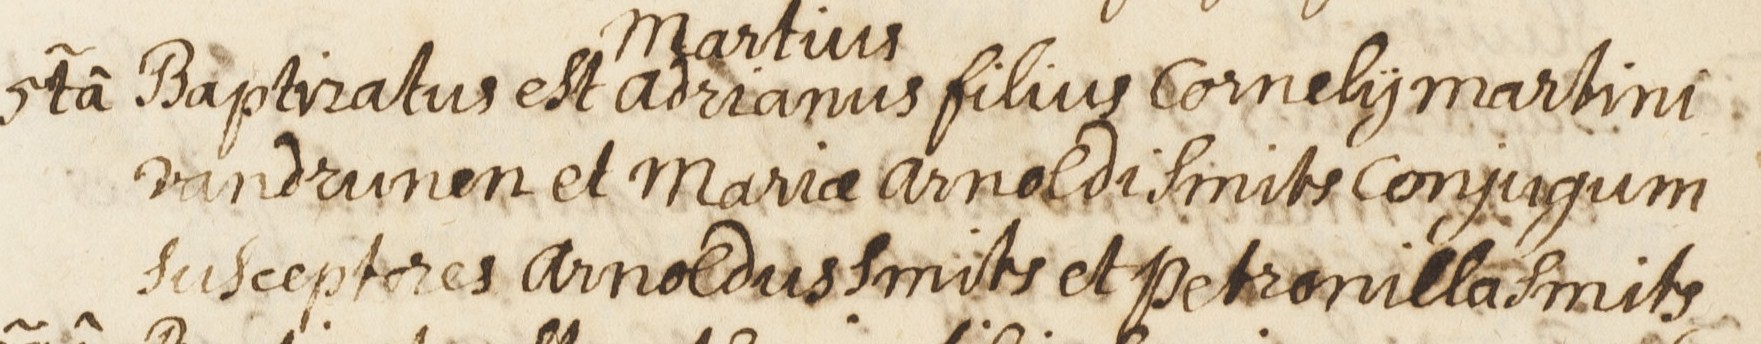 Martius
5ta Baptizatus est Adrianus filius Cornelij martini
vandrunen et Mariæ Arnoldi Smits Conjugum
Susceptores Arnoldus Smits et Petronilla Smits